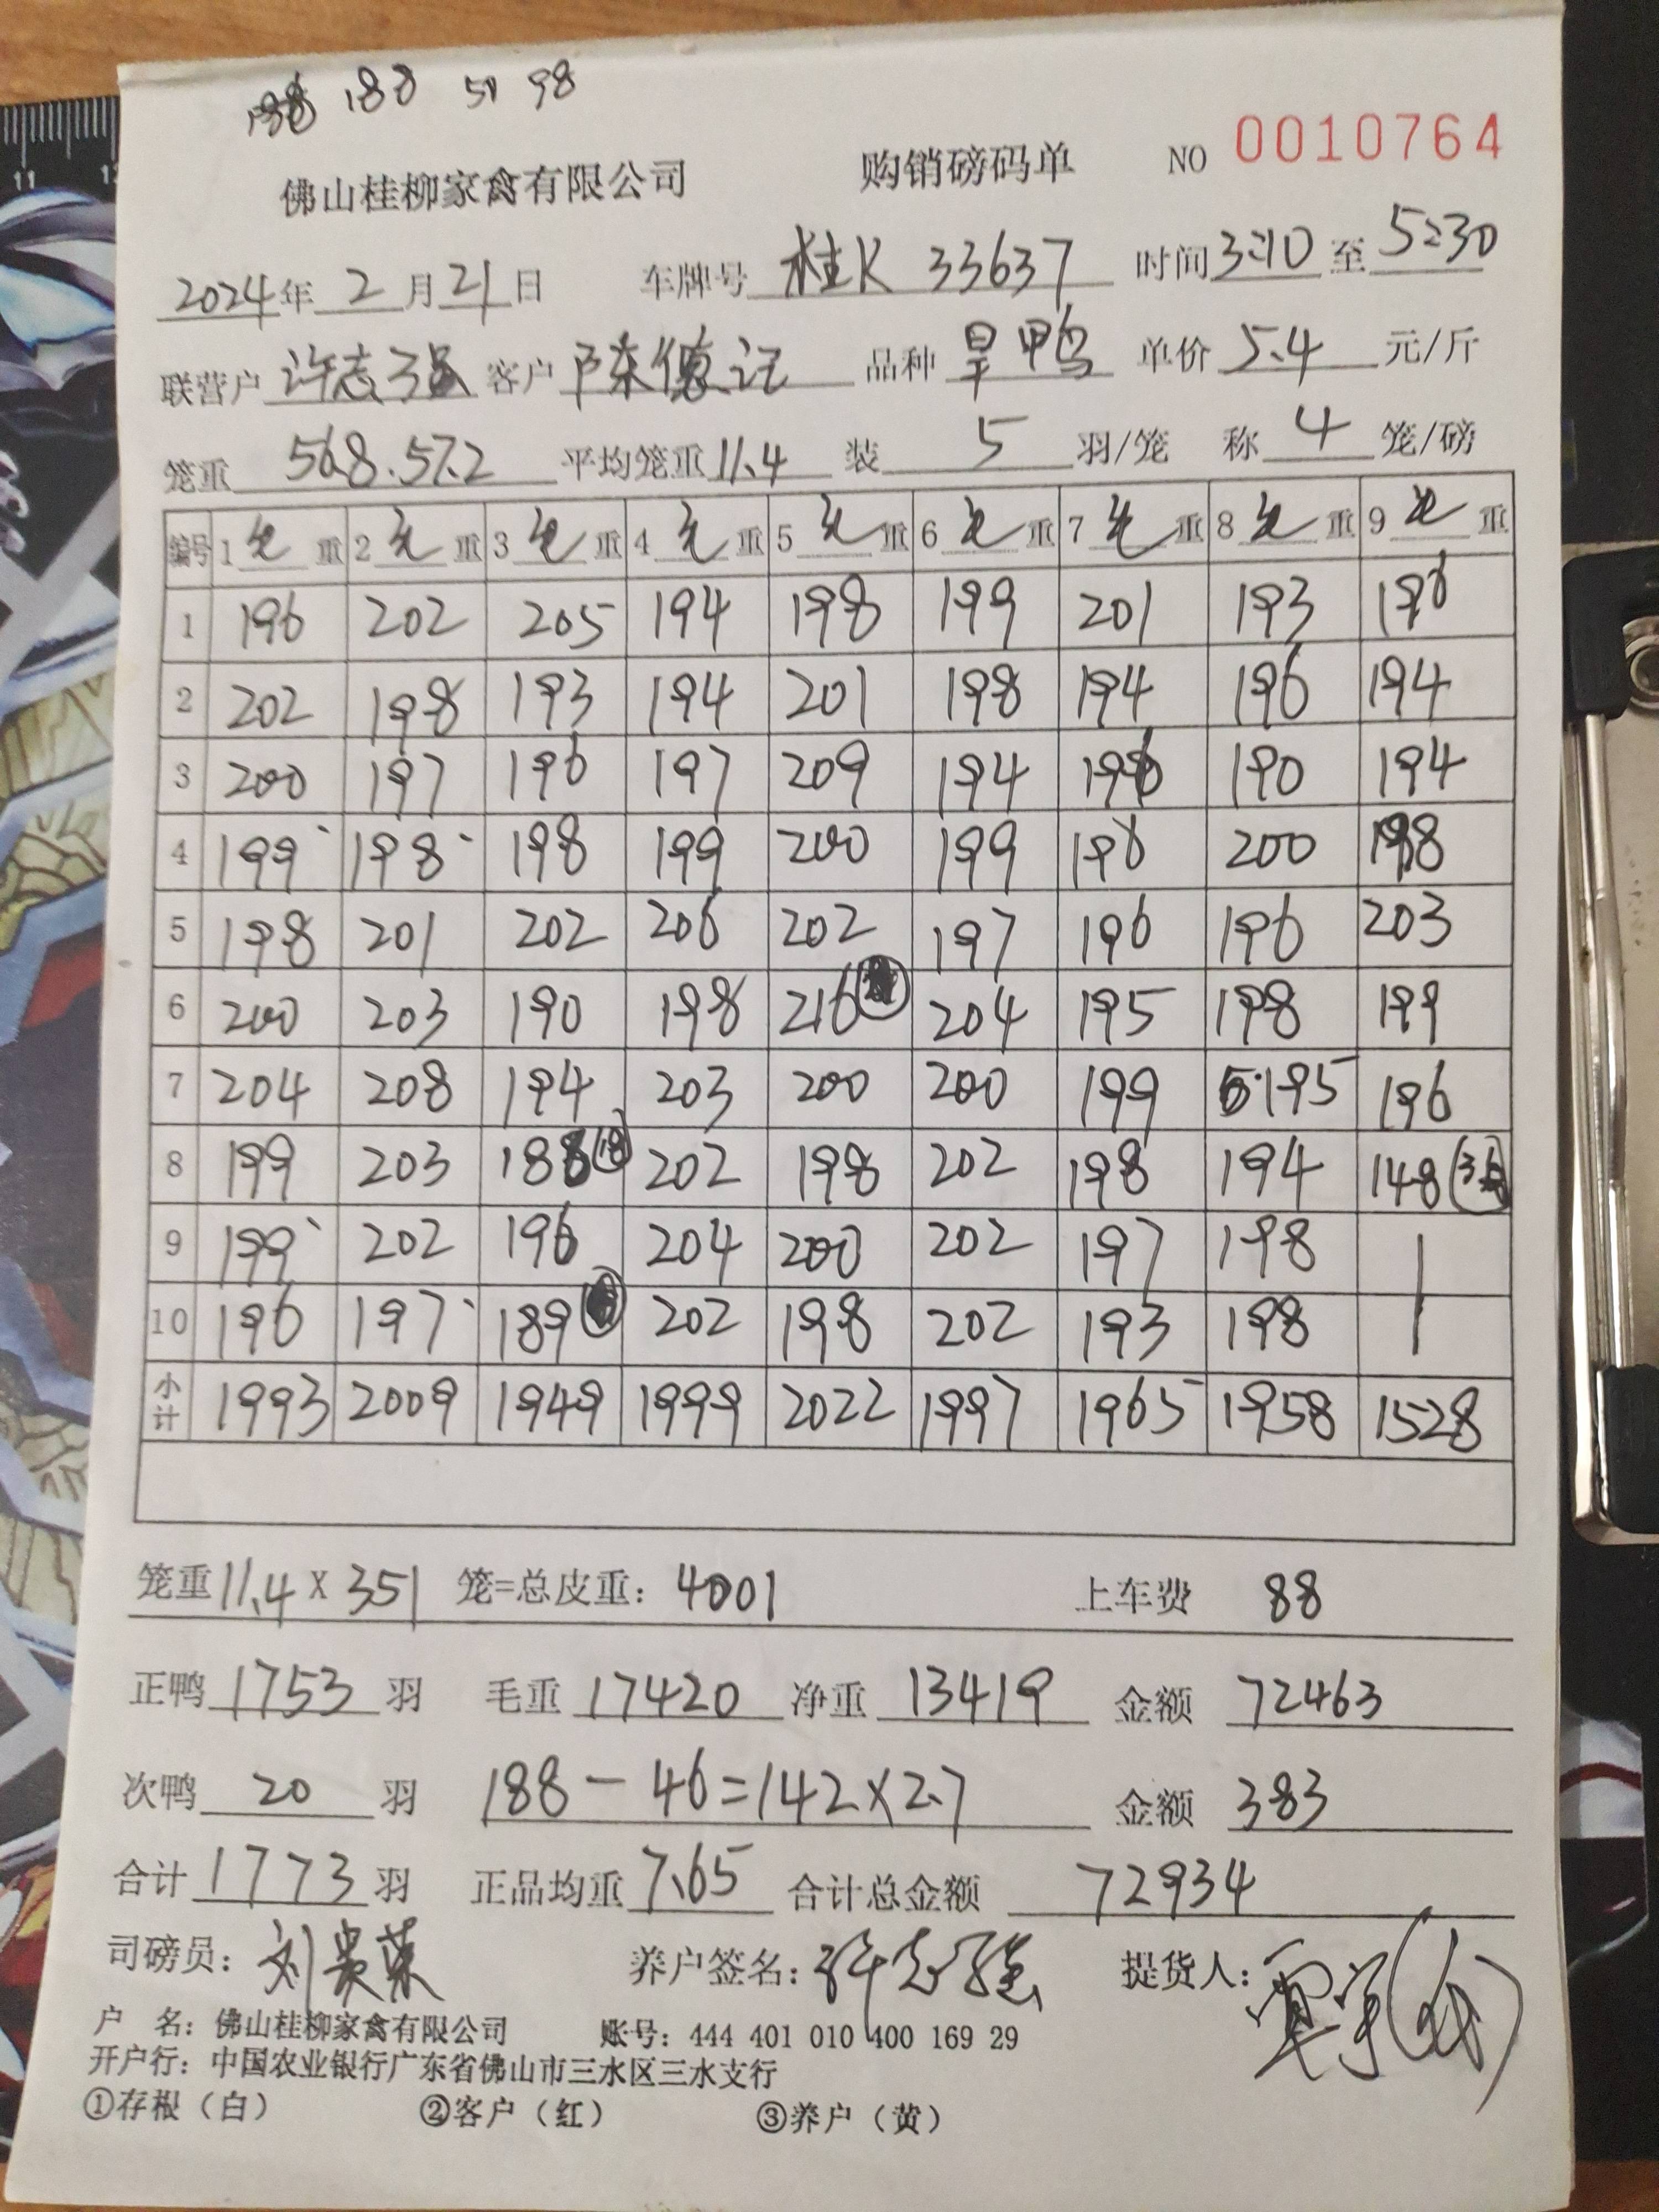 188 50 98
佛山桂柳家禽有限公司 购销磅码单 NO 0010764
2024年 2月21日 车牌号 桂K 33637 时间3:10 至 5:30
联营户 许志强 客户 陈德记 品种 旱鸭 单价 5.4 元/斤
笼重 56.8.57.2 平均笼重11.4 装 5 羽/笼 称 4 笼/磅
编号 1 毛 重 2 毛 重 3 毛 重 4 毛 重 5 毛 重 6 毛 重 7 毛 重 8 毛 重 9 毛 重
1 196 202 205 194 198 199 201 193 196
2 202 198 193 194 201 198 194 196 194
3 200 197 196 197 209 194 196 190 194
4 199 198 198 199 200 199 196 200 198
5 198 201 202 206 202 197 196 196 203
6 200 203 190 198 216 204 195 198 199
7 204 208 194 203 200 200 199 195 196
8 199 203 188 (18) 202 198 202 198 194 148
9 199 202 196 204 200 202 197 198
10 196 197 189 202 198 202 193 198
小计 1993 2009 1949 1999 2022 1997 1965 1958 1528
笼重11.4 X 351 笼=总皮重: 4001 上车费 88
正鸭 1753 羽 毛重 17420 净重 13419 金额 72463
次鸭 20 羽 188 - 46 = 142 X 2.7 金额 383
合计 1773 羽 正品均重 7.65 合计总金额 72934
司磅员: 刘贵荣 养户签名: 许志强 提货人:
户 名: 佛山桂柳家禽有限公司 账号: 444 401 010 400 169 29
开户行: 中国农业银行广东省佛山市三水区三水支行
①存根（白） ②客户（红） ③养户（黄）